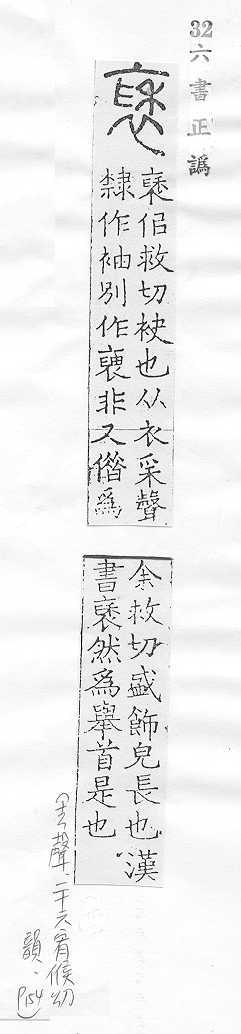 32
六書正譌
褎
褎佀救切袂也从衣采聲
隸作袖別作褏非又僭爲
余救切盛飾皃長也漢
書褎然爲舉首是也
去聲、二十六宥候幼
韻、
P154